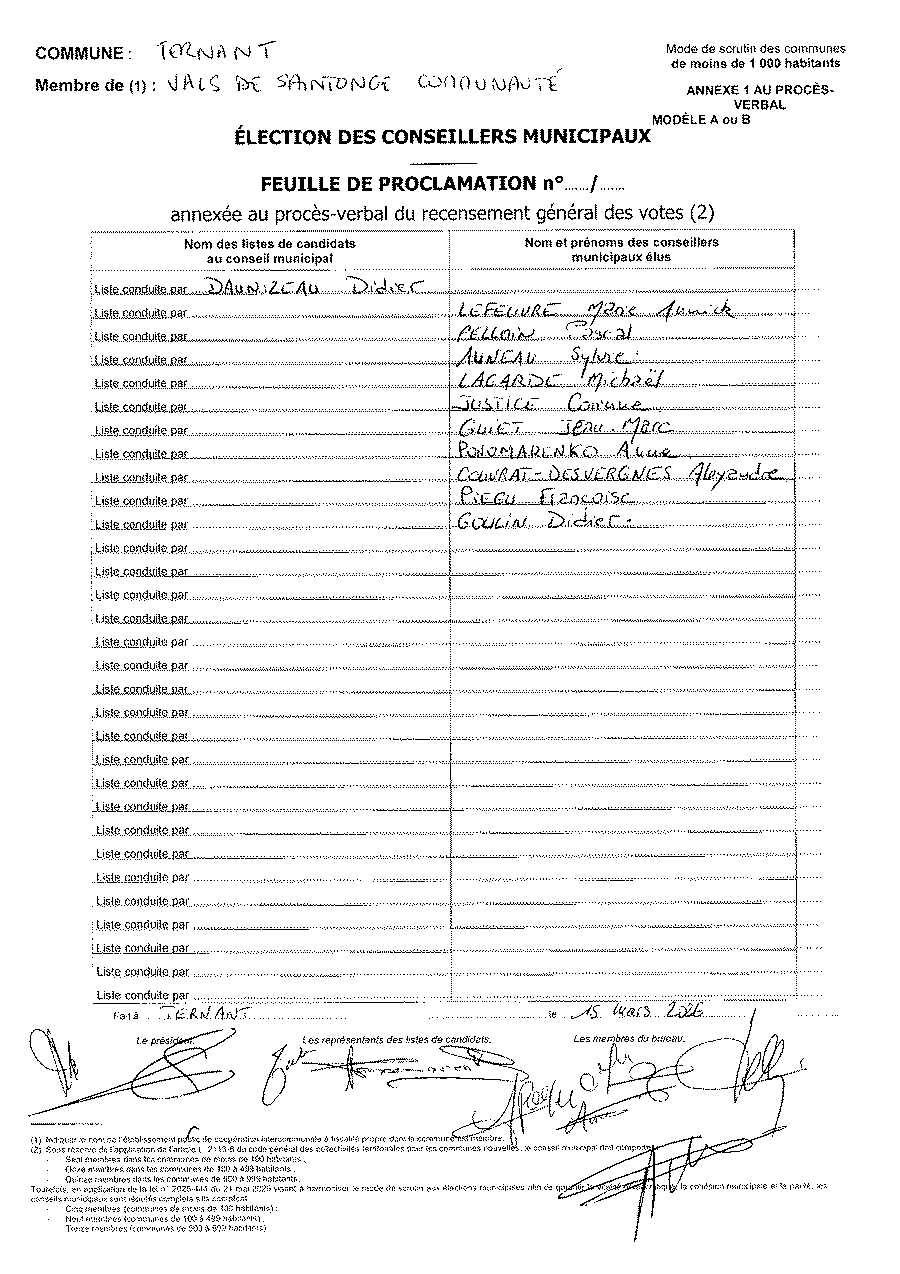 COMMUNE : TERNANT
Mode de scrutin des communes
de moins de 1 000 habitants
Membre de (1) : VALS DE SAINTONGE COMMUNAUTÉ
ANNEXE 1 AU PROCÈS-
VERBAL
MODÈLE A ou B
ÉLECTION DES CONSEILLERS MUNICIPAUX
FEUILLE DE PROCLAMATION n°....../......
annexée au procès-verbal du recensement général des votes (2)
Nom des listes de candidats
au conseil municipal
Nom et prénoms des conseillers
municipaux élus
Liste conduite par DAUNIZEAU Didier
Liste conduite par LEFEUVRE Marie Annick
Liste conduite par PELLOIN Pascal
Liste conduite par AUNEAU Sylvie
Liste conduite par LAGARDE Michaël
Liste conduite par JUSTICE Corinne
Liste conduite par GUIET Jean-Marc
Liste conduite par PONOMARENKO Anne
Liste conduite par COUVRAT-DESVERGNES Alexandre
Liste conduite par PIEGU Françoise
Liste conduite par GOULIN Didier
Liste conduite par
Liste conduite par
Liste conduite par
Liste conduite par
Liste conduite par
Liste conduite par
Liste conduite par
Liste conduite par
Liste conduite par
Liste conduite par
Liste conduite par
Liste conduite par
Liste conduite par
Liste conduite par
Liste conduite par
Liste conduite par
Liste conduite par
Liste conduite par
Liste conduite par
Liste conduite par
Fait à TERNANT le 15 mars 2026
Le président. Les représentants des listes de candidats. Les membres du bureau.
(1) Indiquer le nom de l'établissement public de coopération intercommunale à fiscalité propre dont la commune est membre.
(2) Sous réserve de l'application de l'article L. 2113-6 du code général des collectivités territoriales pour les communes nouvelles, le conseil municipal doit comporter
- Sept membres dans les communes de moins de 100 habitants ;
- Onze membres dans les communes de 100 à 499 habitants ;
- Quinze membres dans les communes de 500 à 999 habitants.
Toutefois, en application de la loi n° 2025-444 du 21 mai 2025 visant à harmoniser le mode de scrutin aux élections municipales afin de garantir la vitalité démocratique, la cohésion municipale et la parité, les
conseils municipaux sont réputés complets s'ils comptent
- Cinq membres (communes de moins de 100 habitants) ;
- Neuf membres (communes de 100 à 499 habitants) ;
- Treize membres (communes de 500 à 999 habitants)